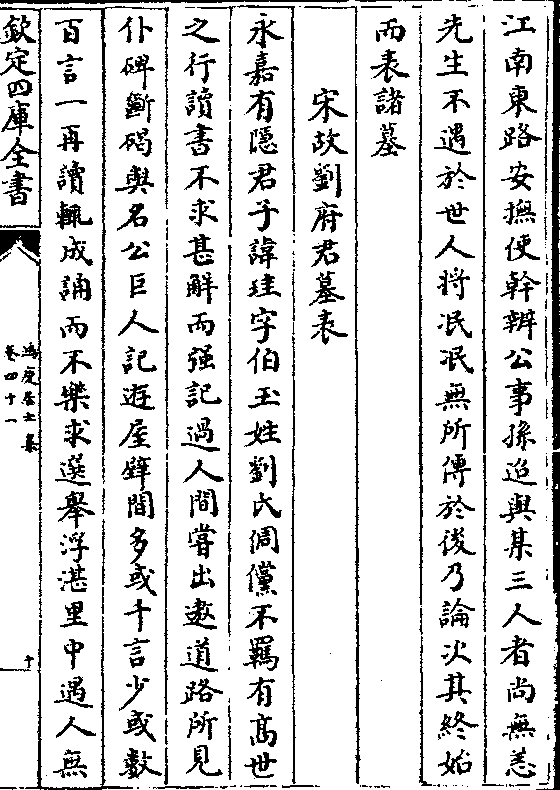 江南東路安撫使幹辦公事孫迨與某三人者尚無恙
先生不遇於世人將泯泯無所傳於後乃論次其終始
而表諸墓
宋故劉府君墓表
永嘉有隱君子諱珪字伯玉姓劉氏倜儻不羈有髙世
之行讀書不求甚解而强記過人間嘗出遨道路所見
仆碑斷碣與名公巨人記逰屋壁間多或千言少或數
百言一再讀輒成誦而不樂求選舉浮湛里中遇人無
欽定四庫全書
鴻慶居士集
卷四十一
十